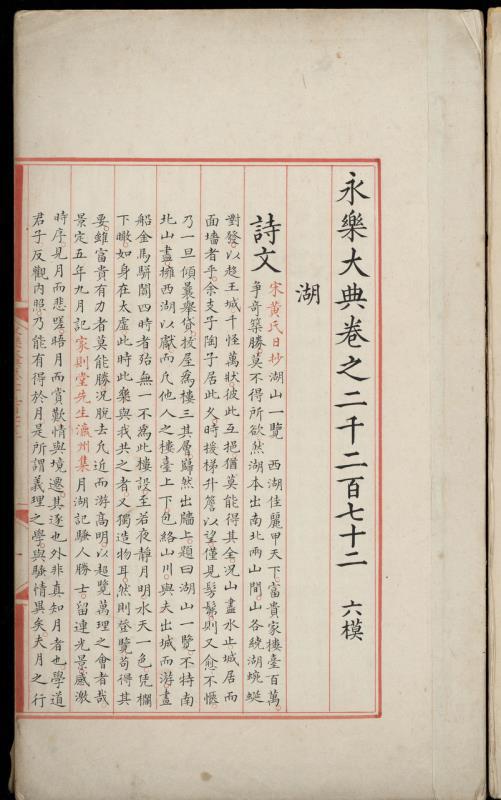 永樂大典卷之二千二百七十二 六模
湖
詩文 宋黃氏日抄湖山一覽 西湖佳麗甲天下富貴家樓臺百萬
爭奇築勝莫不得所欲然湖本出南北兩山間山各繞湖蜿蜒
對發以趍王城千怪萬狀彼此互挹猶莫能得其全况山盡水止城居而
面墻者乎余支子陶子居此久時援梯升簷以望僅見髣髴則又愈不愜
乃一旦傾囊舉貸救屋為樓三其層巋然出牆上題曰湖山一覽不特南
北山盡擁西湖以獻而凡他人之樓臺上下包絡山川與夫出城而游畫
船金馬駢闐四時者殆無一不為此樓設至若夜靜月明水天一色凭欄
下瞰如身在太虛此時此樂與我共之者又獨造物耳然則登覽苟得其
要雖富貴有力者莫能勝况脫去凡近而游高明以超覽萬理之會者哉
景定五年九月記家則堂先生瀛州集月湖記騷人勝士留連光景感激
時序見月而悲嗟暗月而賞歎情與境遷其逐也外非真知月者也學道
君子反觀內照乃能有得於月是所謂義理之學與騷情異矣夫月之行